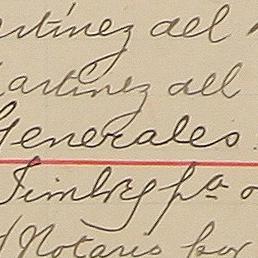 artínez del
artinez del
Generales.
Timbre pa
Notario por